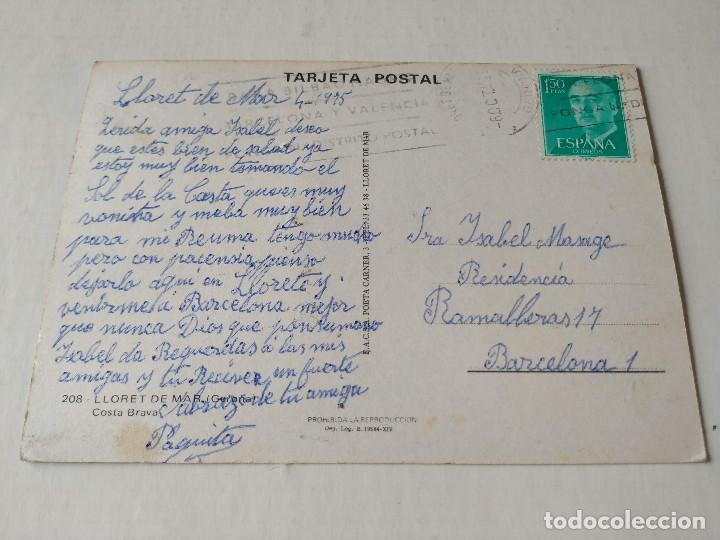 TARJETA POSTAL
Lloret de Mar 4 1975
Zerida amiga Isabel deseo
que estes bien de salud yo
estoy muy bien tomando el
Sol de la Costa que es muy
vonita y meba muy bien
para mi Reuma tengo mucho
pero con paciensia pienso
dejarlo aqui en Lloret y
venirme á Barcelona mejor
que nunca Dios que pon su mano
Isabel da Requerdas á las mis
amigas y tu Recive un fuerte
abrazo de tu amiga
Paquita
208 - LLORET DE MAR (Gerona)
Costa Brava
POETA CARNER, 3 - LLORET DE MAR
PROHIBIDA LA REPRODUCCION
Dep. Leg. B. 19584-XIV
BARCELONA Y VALENCIA
DISTRITO POSTAL
PONGA
1'50
PTAS
ESPAÑA
CORREOS
Sra Isabel Masage
Residencia
Ramalleras 17
Barcelona 1
todocoleccion
todocoleccion.net